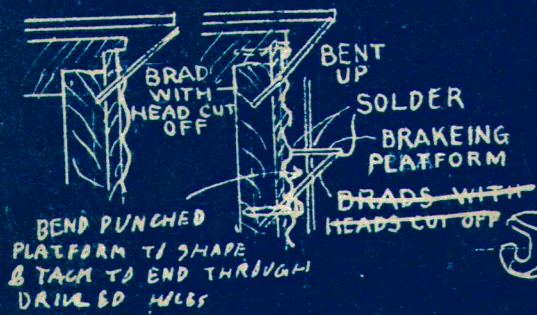 BENT
UP
BRAD
WITH
HEAD CUT
OFF
SOLDER
BRAKEING
PLATFORM
BRADS WITH
HEADS CUT OFF
BEND PUNCHED
PLATFORM TO SHAPE
& TACK TO END THROUGH
DRILLED HOLES